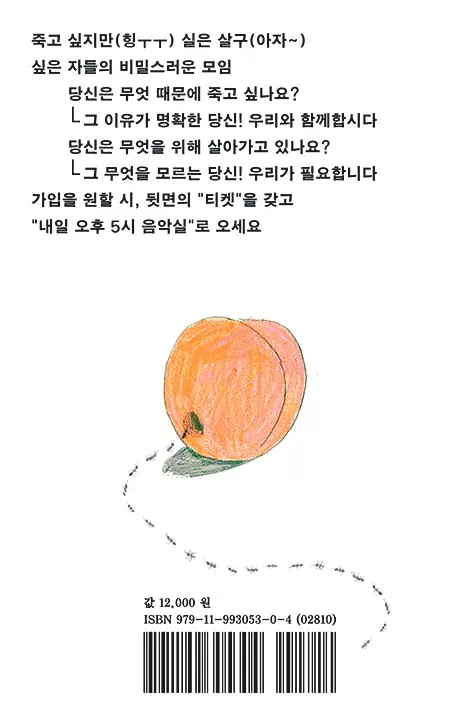 죽고 싶지만(힝ㅜㅜ) 실은 살구(아자~)
싶은 자들의 비밀스러운 모임
당신은 무엇 때문에 죽고 싶나요?
└그 이유가 명확한 당신! 우리와 함께합시다
당신은 무엇을 위해 살아가고 있나요?
└그 무엇을 모르는 당신! 우리가 필요합니다
가입을 원할 시, 뒷면의 "티켓"을 갖고
"내일 오후 5시 음악실"로 오세요
값 12,000 원
ISBN 979-11-993053-0-4 (02810)